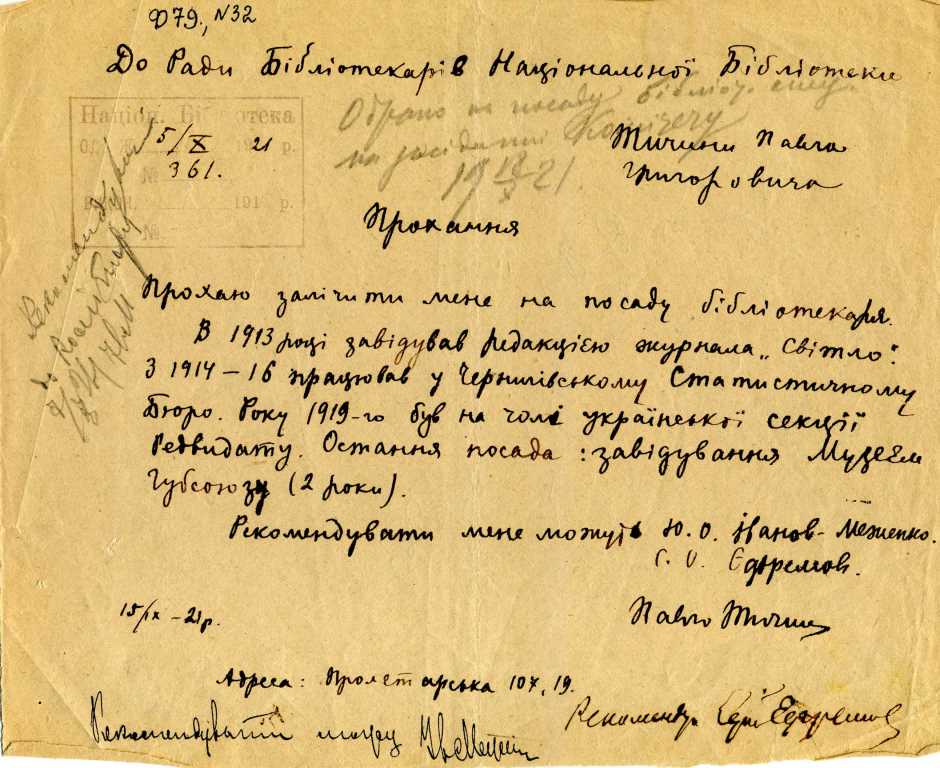 Ф79., №32
До Ради Бібліотекарів Національної Бібліотеки
Націон. Бібліотека
5/X 21
361.
191 р.
№
Обрано на посаду бібліот.
на засіданні Комітету
21.
Тичини Павла
Григоровича
Прохання
Прохаю залічити мене на посаду бібліотекаря.
В 1913 році завідував редакцією журнала „Світло".
З 1914 – 16 працював у Чернигівському Статистичному
Бюро. Року 1919-го був на чолі української секції
Редвидату. Остання посада : завідування Музеєм
Губсоюзу (2 роки).
Рекомендувати мене можуть Ю. О. Іванов-Меженко.
С. О. Єфремов.
15/IX – 21 р.
Павло Тичина
Адреса : Пролетарська 107, 19.
Рекомендую Сергій Єфремов
Рекомендувати можу